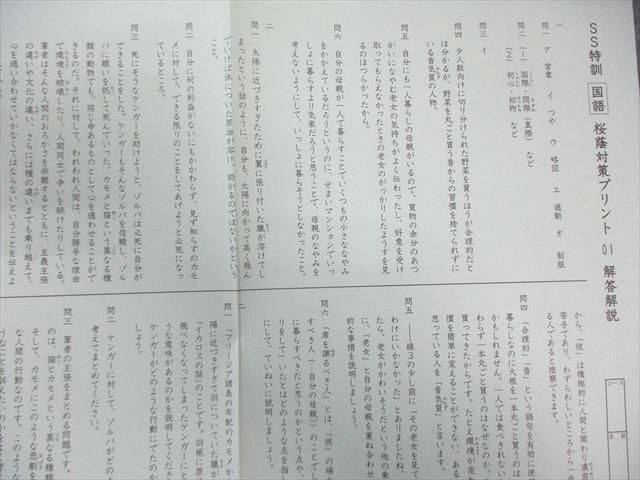 SS特訓 国語 桜蔭対策プリント 01 解答解説
コース
名前
一
問一 ア 営業 イ つや ウ 略図 エ 通勤 オ 制服
問二 (1) 国際・間際(真際) など
(2) 初心・初物 など
問三 イ
問四 少人数向けに切り分けられた野菜を買うほうが合理的だと
は分かるが、野菜を丸ごと買う昔からの習慣を捨てられずに
いる昔気質の人物。
問五 自分にも一人暮らしの母親がいるので、買物の余分のあつ
かいになやむ老女の気持ちがよく伝わったし、好意を受け
取ってもらえなかったときの老女のがっかりしたようすを見
るのはつらかったから。
問六 自分の母親が一人で暮らすことでいくつもの小さななやみ
をかかえているだろうというのに、せまいマンションでいっ
しょに暮らすより気楽だろうと思うことで、母親のなやみを
考えないようにして、いっしょに暮らそうとしなかったこと。
二
問一 太陽に近づきすぎたために翼に張り付いた臘が溶けてし
まったという話のように、自分も、太陽に向かって高く飛ん
でいけば体についた原油が溶け、助かるのではないかという
こと。
問二 自分に何の利益がないにもかかわらず、見ず知らずのカモ
メに対して、できる限りのことをしてあげようと必死になっ
ているところ。
問三 死にそうなケンガーを助けようと、ゾルバは必死に自分が
できることをした。ケンガーもそんなゾルバを信頼し、ゾル
バに願いを託して死んでいった。カモメと猫という異なる種
類の動物でも、同じ命あるものとして心を通わせることがで
きるのだ。それに対して、われわれ人間は、自分勝手な理由
で環境を破壊したり、人間同士で争いを続けたりしている。
筆者はそんな人間のおろかさを非難するとともに、主義主張
の違いや文化の違い、さらには種の違いまでも乗り越えて、
心を通い合わせていかなくてはならないということを伝えよ
から、「彼」は積極的に人間と関わり濃密
苦手であり、わずらわしいところから一
る人であると推察できます。
問四 「合理的」「昔」という語句を有効に使
暮らしなのに大根を一本丸ごと買うのは
かもしれません。一人では食べきれない
わらず一本丸ごと買うのはなぜなのか。
買ってきたからです。たとえ環境が変わ
慣を簡単に変えることができない、ある
思っている人を「昔気質」と言います。
問五 ――線3の少し前に「その老女を見て
わけにいかなかった」とありますね。
たら、老女がかわいそうだという他の乗
に、「老女」と自分の母親を重ね合わせ
的な事情を説明しましょう。
問六 「席を譲るべき人」とは、「彼」の場合
すべき人(=自分の母親)のことでし
に暮らすべきだと思うのかという点や、
りをして」いたとはどのような点を指し
にして、ていねいに説明しましょう。
二
問一 「フリージア諸島の年配のカモメか
「イカロスの話」のことです。羽根に原
陽に近づきすぎて羽についていた臘が
飛べなくなってしまったケンガーにと
うな意味があるのかを説明してくださ
ケンガーがどのような行動にでたのか
しょう。
問二 ケンガーに対して、ゾルバがどのよ
考えてまとめてください。
問三 筆者の主張をまとめる問題です。
のは、猫とカモメという異なる種類
そして、カモメにこのような悲劇を
な人間の行動なのです。このような